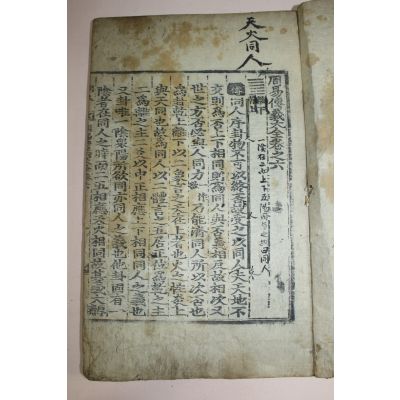 天火同人
周易傳義大全卷之六
傳同人序卦物不可以終否故受之以同人夫天地不
交則爲否上下相同則爲同人與否義相反故相次又
世之方否必與人同力乃能濟同人所以次否也
爲卦乾上離下以二象言之天在上者也火之性炎上
與天同也故爲同人以二體言之五居正位爲乾之主
二爲離之主二爻以中正相應上下相同同人之義也
又卦唯一陰衆陽所欲同亦同人之義也他卦固有一
陰者在同人之時而二五相應天火相同故其義大